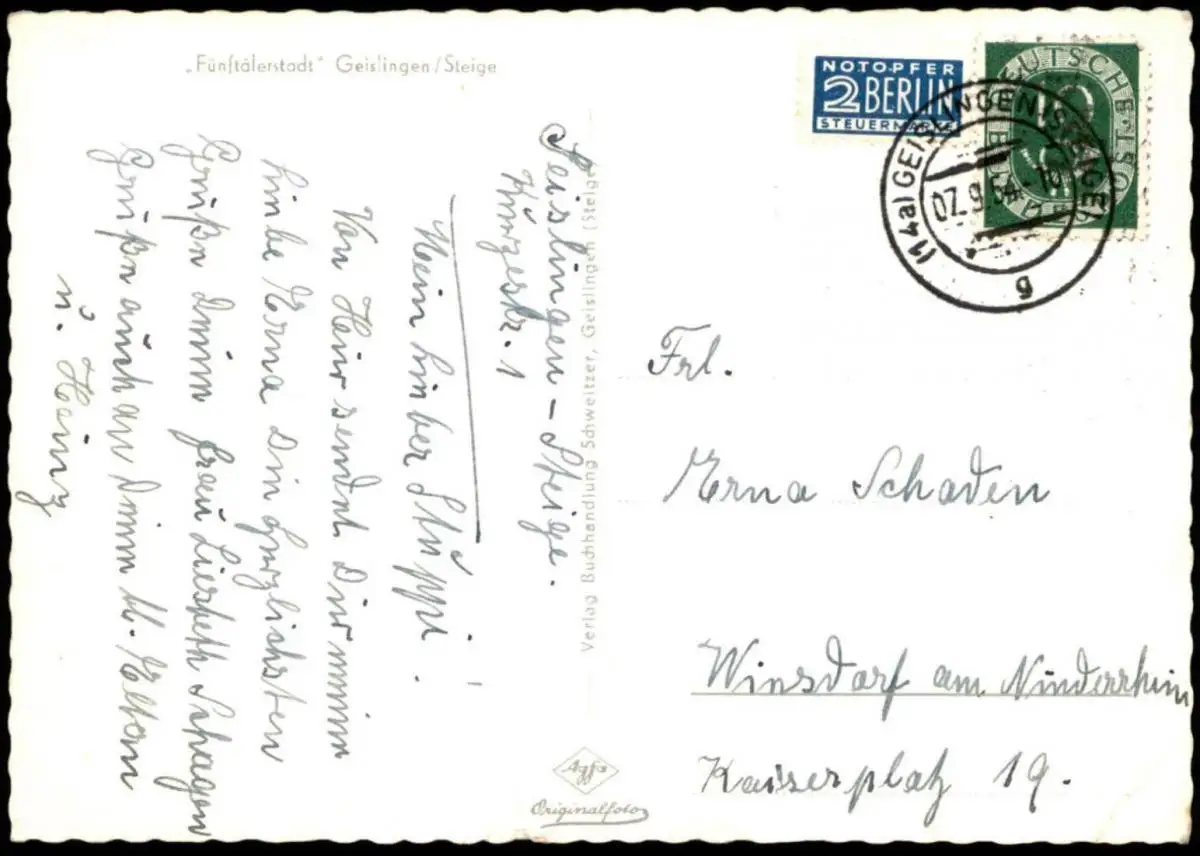 „Fünftälerstadt“ Geislingen/Steige
NOTOPFER
2 BERLIN
STEUERMARKE
DEUTSCHE BUNDESPOST
(14a) GEISLINGEN (STEIGE)
07.9.54.-10
g
Geislingen – Steige.
Kinzestr. 1
Mein lieber Stüppi!
Von Hier sendet Dir meine
liebe Erna die herzlichsten
Grüße Deine Frau Liesbeth Schagen
Grüße auch an Deine lb. Eltern
u. Heinz
Verlag Buchhandlung Schweitzer, Geislingen (Steige)
Agfa
Originalfoto
Frl.
Erna Schaden
Winsdorf am Niederrhein
Kaiserplatz 19.